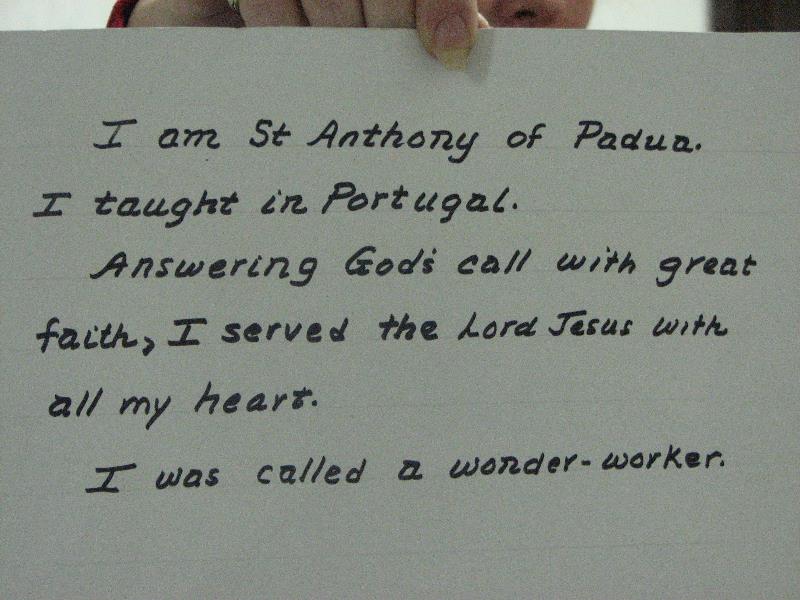 I am St Anthony of Padua.
I taught in Portugal.
Answering God's call with great
faith, I served the Lord Jesus with
all my heart.
I was called a wonder-worker.